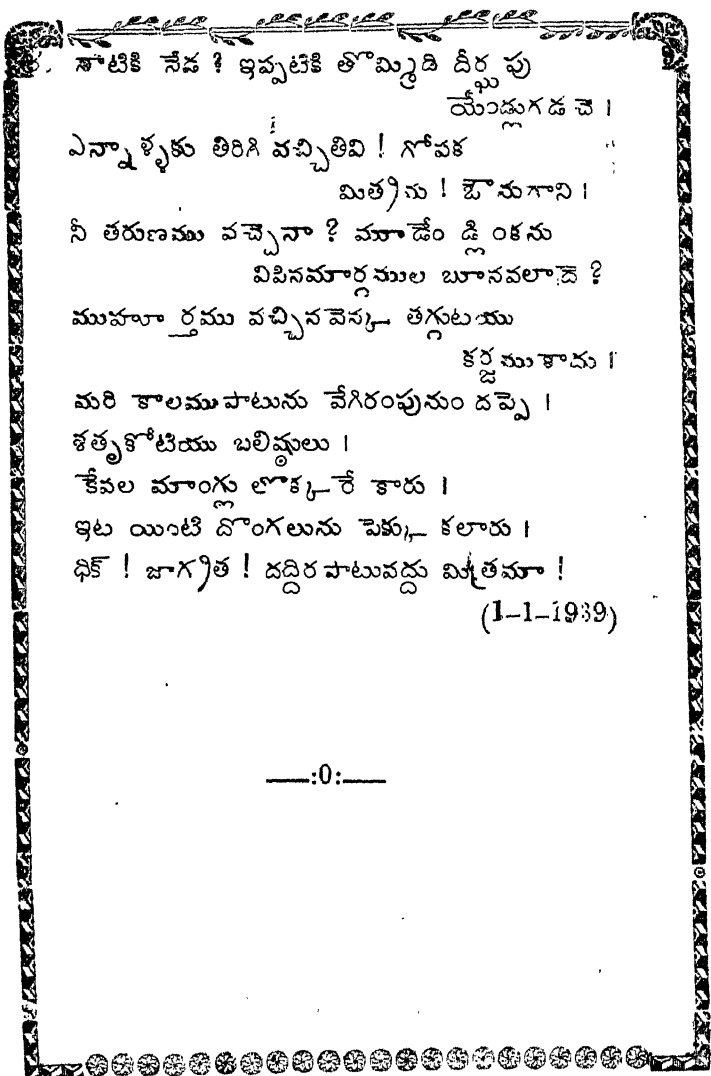 నాటికి నేడ ? ఇప్పటికి తొమ్మిది దీర్ఘపు
యేండ్లుగడచె ।
ఎన్నాళ్ళకు తిరిగి వచ్చితివి ! గోపక
మిత్రిను ! ఔనుగాని ।
నీ తరుణము వచ్చెనా ? మూడేం డ్లింకను
విపినమార్గముల బూనవలాదె ?
ముహూర్తము వచ్చినవెన్క తగ్గుటయు
కర్జముకాదు ।
మరి కాలముపాటును వేగిరంపునుం దప్పె ।
శతృకోటియు బలిష్ఠులు ।
కేవల మాంగ్లు లొక్కరే కారు ।
ఇట యింటి దొంగలును పెక్కు కలారు ।
ధిక్ ! జాగ్రిత ! దద్దిరపాటువద్దు మిత్రమా !
(1-1-1939)
—:0:—